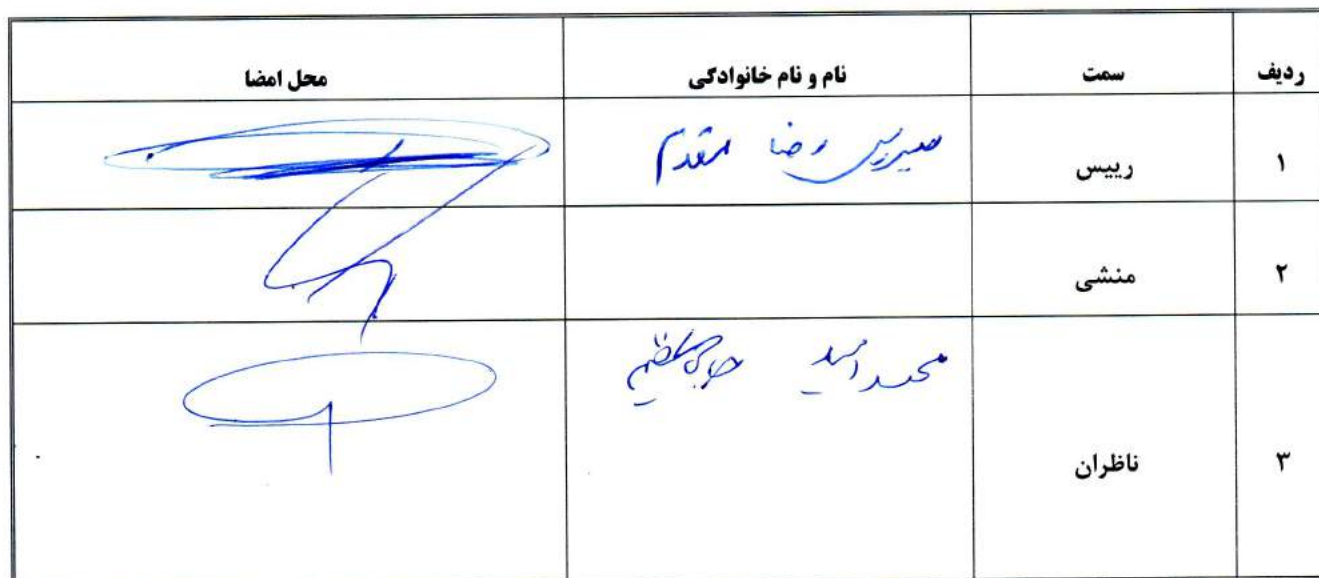 ردیف سمت نام و نام خانوادگی محل امضا
۱ رییس رضا مقدم
۲ منشی
۳ ناظران محمد امید